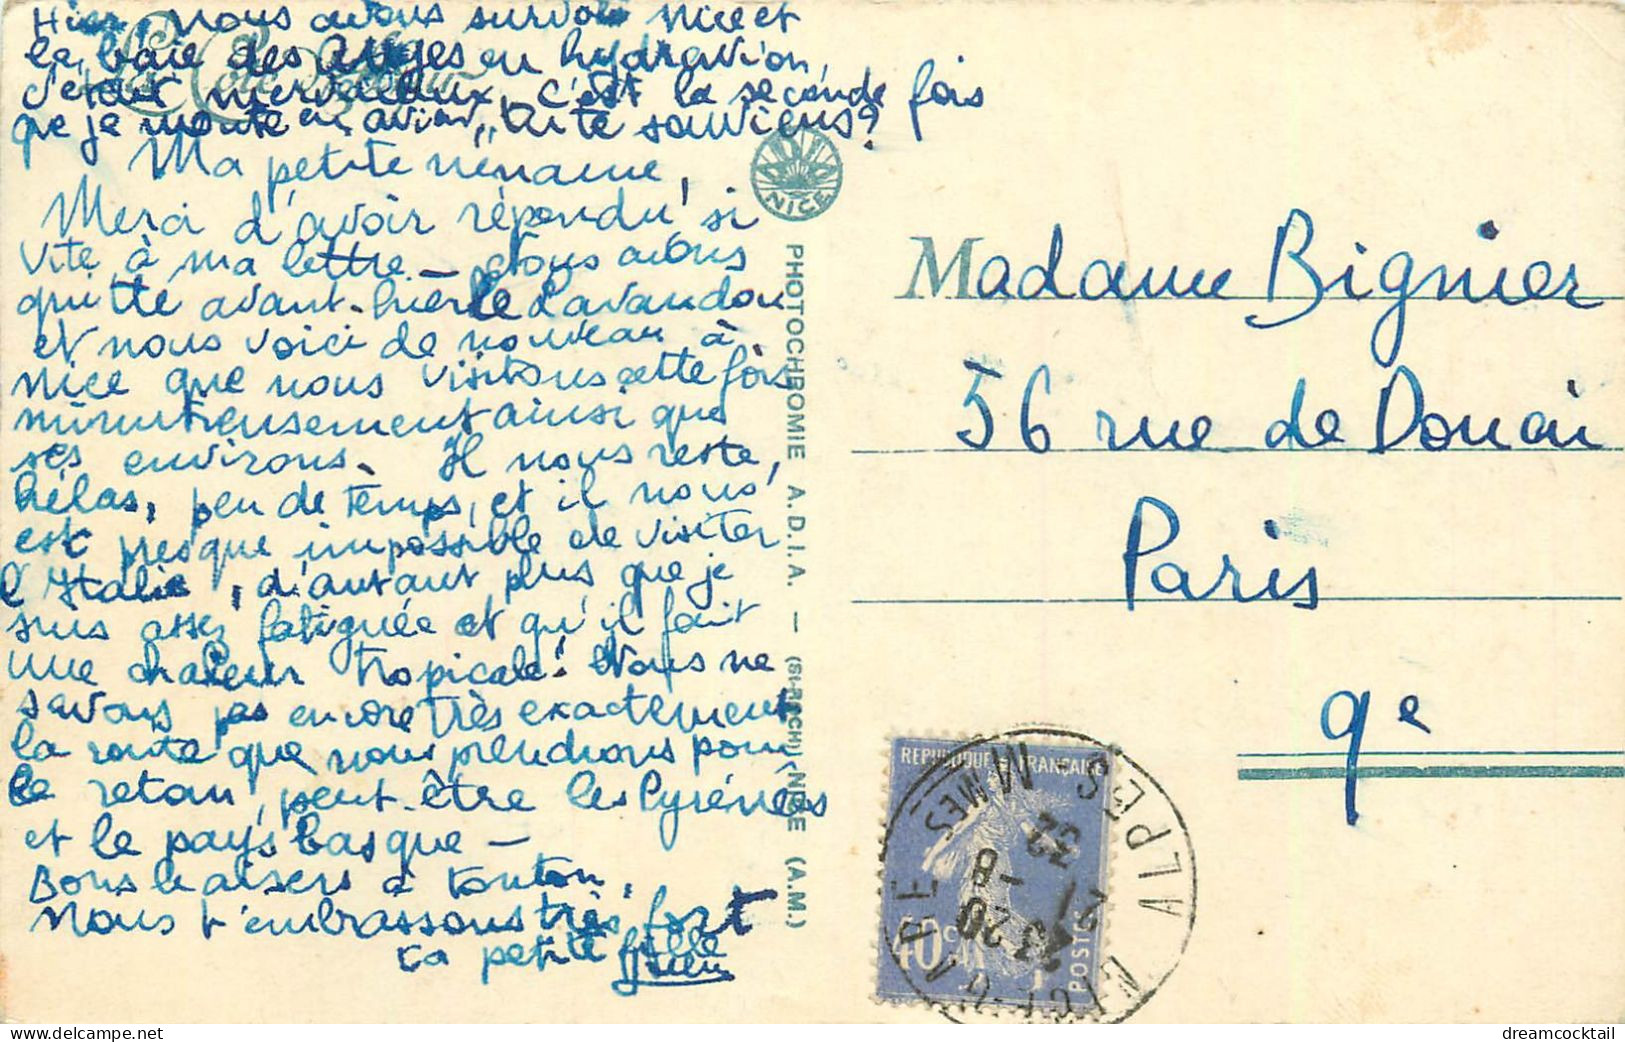 Hier, nous avons survolé Nice et
la baie des Anges en hydravion,
c'était merveilleux, c'est la seconde fois
que je monte en avion, tu te souviens?
Ma petite némaine,
Merci d'avoir répondu si
vite à ma lettre _ Nous avons
quitté avant-hier le Lavandou
et nous voici de nouveau à
Nice que nous visitons cette fois
minutieusement ainsi que
ses environs. Il nous reste,
hélas, peu de temps, et il nous
est presque impossible de visiter
l'Italie, d'autant plus que je
suis assez fatiguée et qu'il fait
une chaleur tropicale. Nous ne
savons pas encore très exactement
la route que nous prendrons pour
le retour, peut-être les Pyrénées
et le pays basque _
Bons baisers à tonton,
Nous t'embrassons très fort
ta petite fille
NICE
PHOTOCHROMIE A.D.I.A. — (SI-RACH) NICE (A.M.)
Madame Bignier
56 rue de Douai
Paris
9e
REPUBLIQUE FRANÇAISE
40c
POSTES
ALPES MMES
21 -8 32
dreamcocktail - delcampe.net